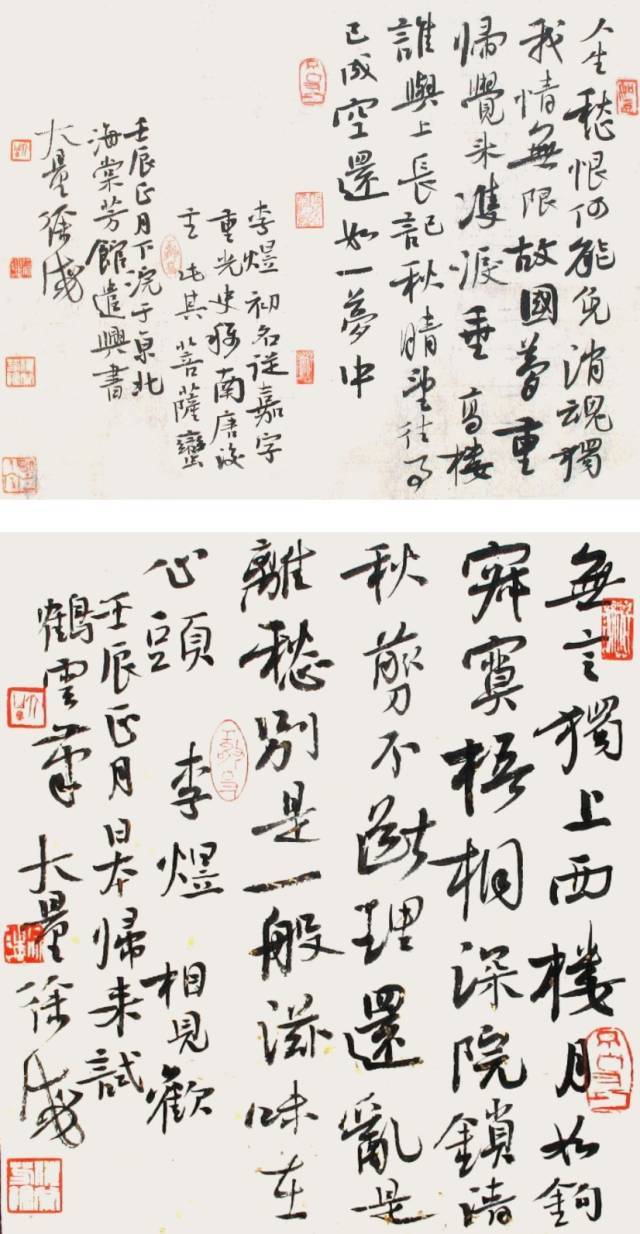 人生愁恨何能免消魂獨
我情無限故國夢重
歸覺来雙淚垂高樓
誰與上長記秋晴望往事
已成空還如一夢中
李煜初名從嘉字
重光史稱南唐後
主此其菩薩蠻
壬辰正月下浣于京北
海棠芳館遣興書
大量徐盛
無言獨上西樓月如鉤
寂寞梧桐深院鎖清
秋剪不斷理還亂是
離愁別是一般滋味在
心頭 李煜 相見歡
壬辰正月日本歸来試
鶴雲筆 大量徐盛